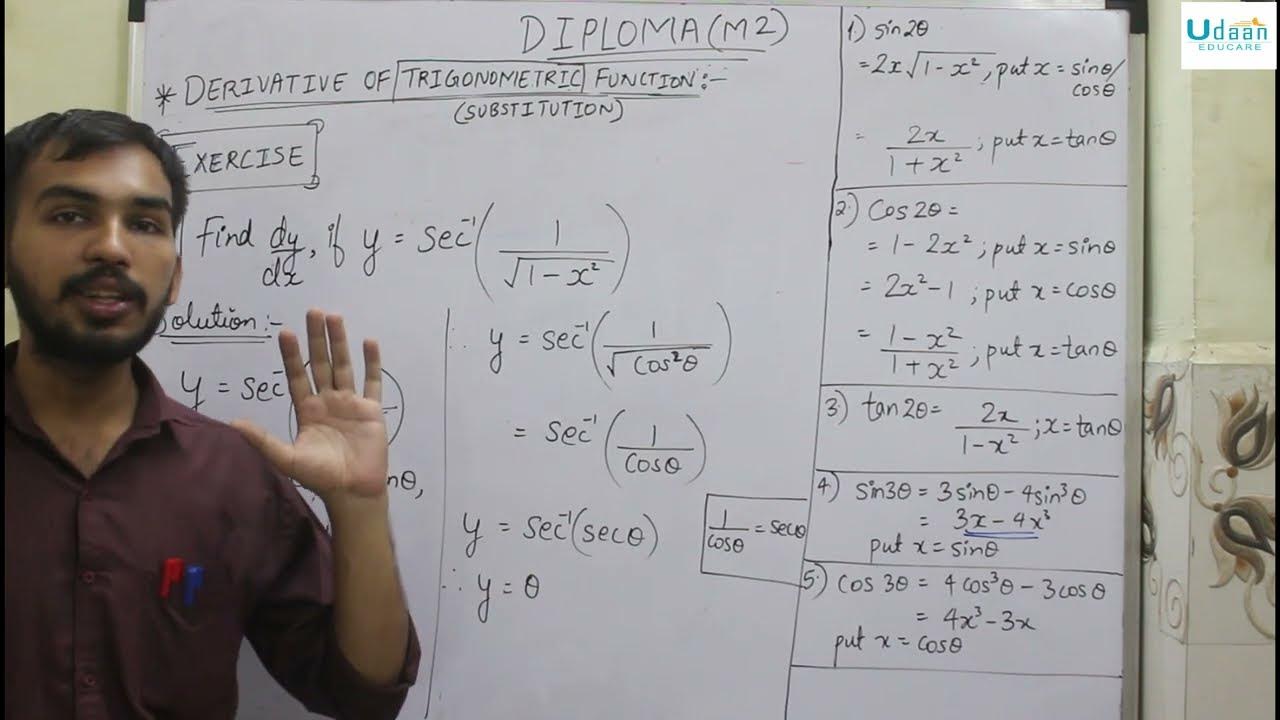 DIPLOMA(M2)
* DERIVATIVE OF TRIGONOMETRIC FUNCTION:-
(SUBSTITUTION)
EXERCISE
Find dy/dx, if y = sec⁻¹(1/√(1-x²))
Solution:-
y = sec⁻¹
nθ,
∴ y = sec⁻¹(1/√(cos²θ))
= sec⁻¹(1/cosθ)
y = sec⁻¹(secθ)
1/cosθ = secθ
∴ y = θ
1) sin2θ
= 2x√(1-x²), put x = sinθ/
cosθ
= 2x/(1+x²); put x = tanθ
2) Cos2θ =
= 1-2x²; put x = sinθ
= 2x²-1; put x = cosθ
= (1-x²)/(1+x²); put x = tanθ
3) tan2θ = 2x/(1-x²); x = tanθ
4) sin3θ = 3sinθ - 4sin³θ
= 3x - 4x³
put x = sinθ
5) cos3θ = 4cos³θ - 3cosθ
= 4x³ - 3x
put x = cosθ
Udaan
EDUCARE